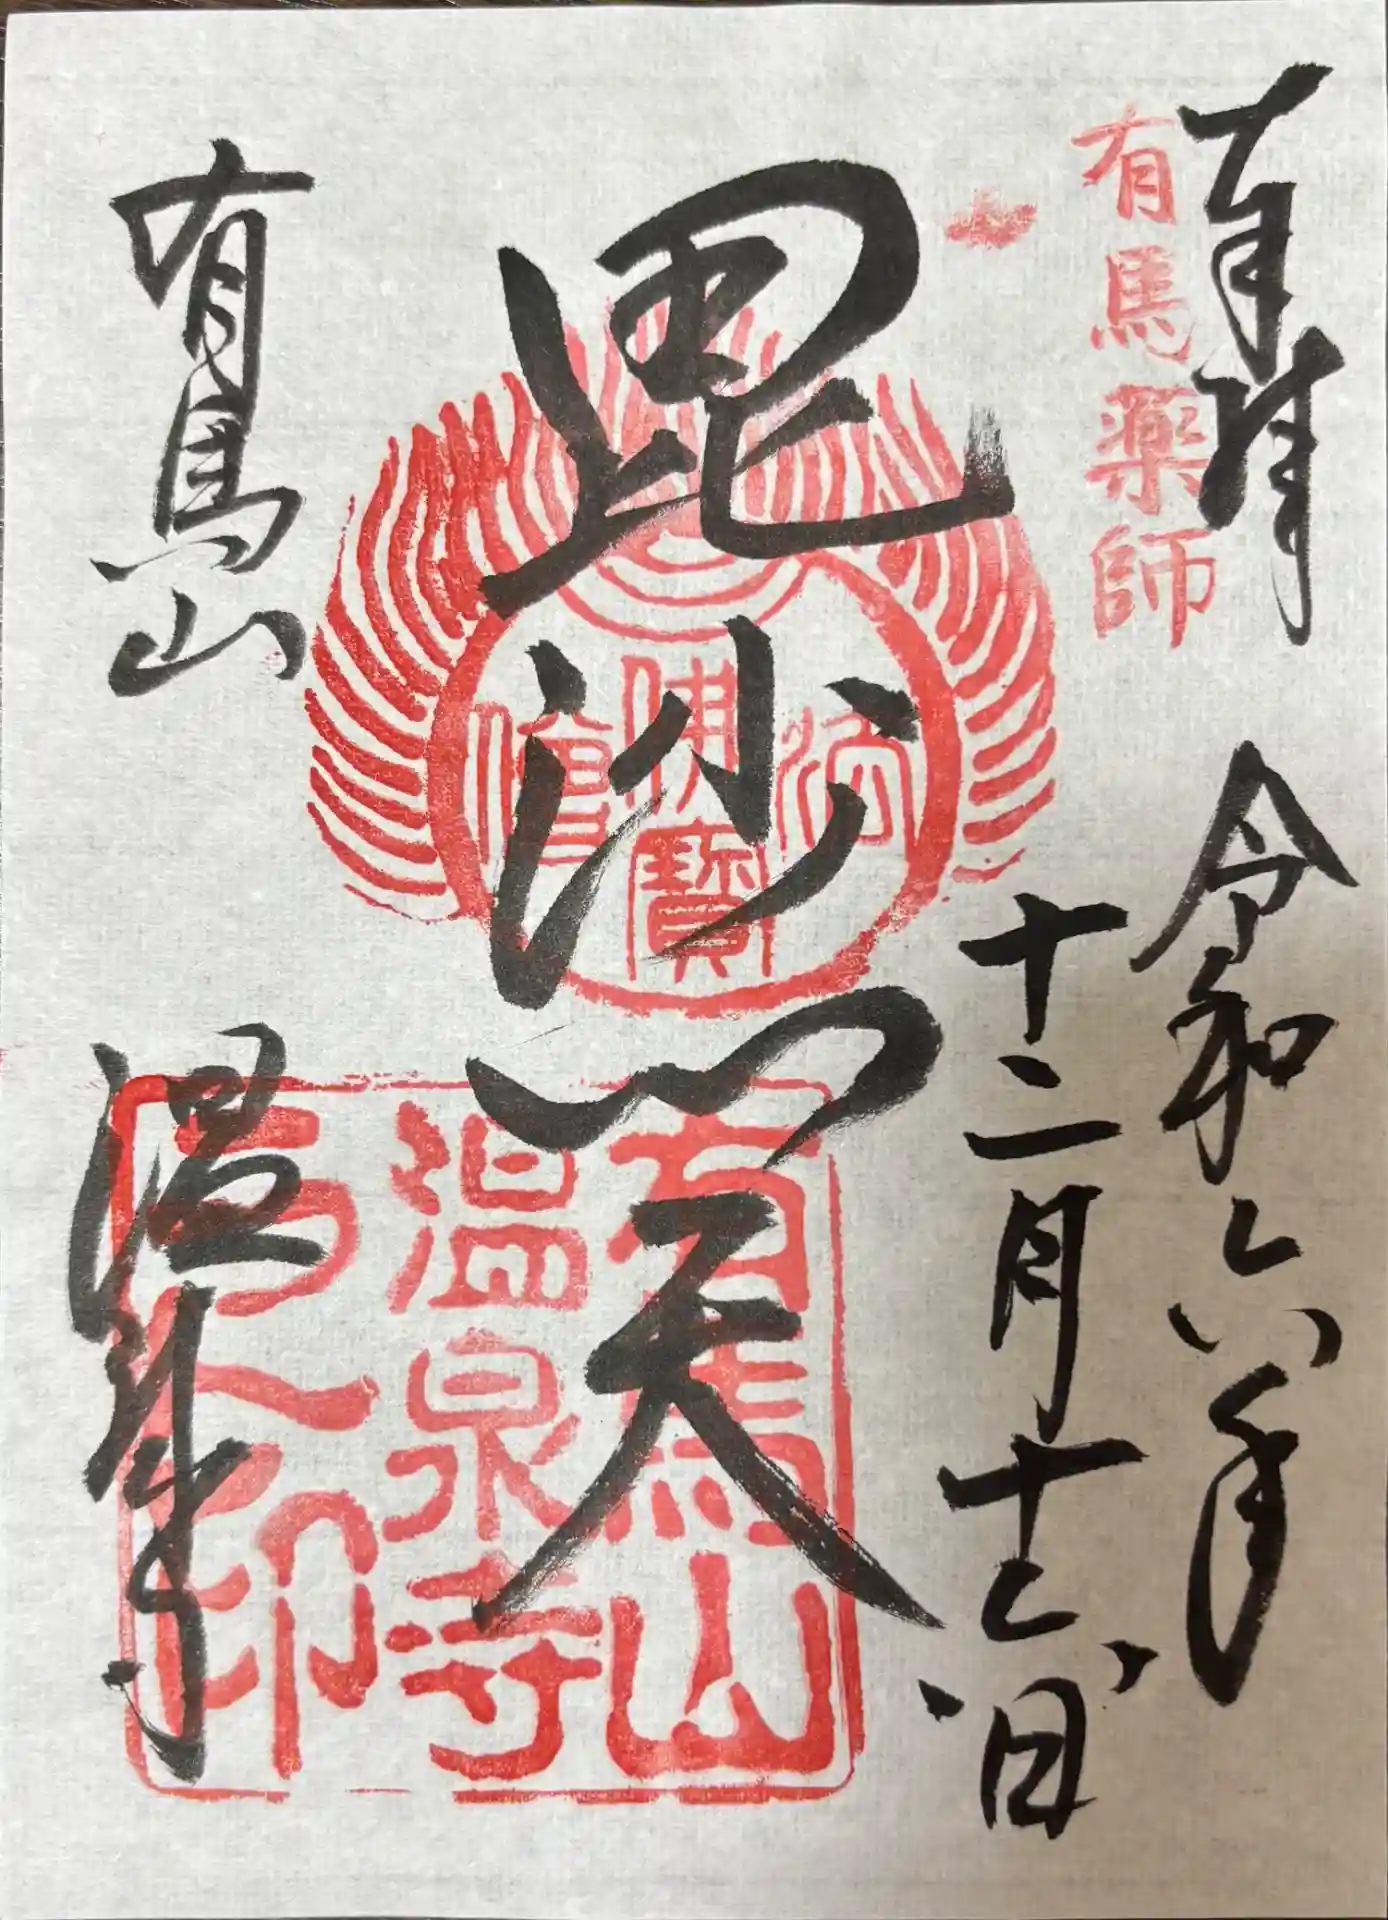 奉拝
有馬薬師
令和六年
十二月十六日
毘沙門天
法
佛寶
僧
有馬山
温泉寺
印
有馬山
温泉寺